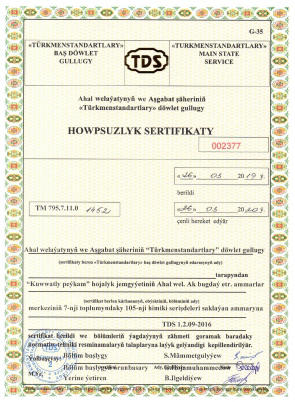 G-35
«TÜRKMENSTANDARTLARY»
BAŞ DÖWLET
GULLUGY
TDS
«TURKMENSTANDARTLARY»
MAIN STATE
SERVICE
Ahal welaýatynyň we Aşgabat şäheriniň
«Türkmenstandartlary» döwlet gullugy
HOWPSUZLYK SERTIFIKATY
002377
«26» 03 2019 ý.
berildi
TM 795.7.11.0 1452
«26» 03
çenli hereket edýär
Ahal welaýatynyň we Aşgabat şäheriniň "Türkmenstandartlary" döwlet gullugy
(sertifikaty beren «Türkmenstandartlary» baş döwlet gullugynyň edarasynyň ady)
tarapyndan
"Kuwwatly peýkam" hojalyk jemgyýetiniň Ahal wel. Ak bugdaý etr. ammarlar
(sertifikat berlen kärhananyň, eýeçiniň, bölüminiň ady)
merkeziniň 7-nji toplumyndaky 105-nji himiki serişdeleri saklaýan ammaryna
TDS 1.2.09-2016
sertifikat berildi we bölümiň ýagdaýynyň ähmeti goramak baradaky
normatiw-tehniki resminamalaryň talaplaryna laýyk gelýändigi kepillendirilýär.
Ýolbaşçysy: Bölüm başlygy S.Mämmetgulyýew
Bölüm başlygynyň orunbasary
M.Ýe. Ýerine ýetiren B.Ilgeldiýew